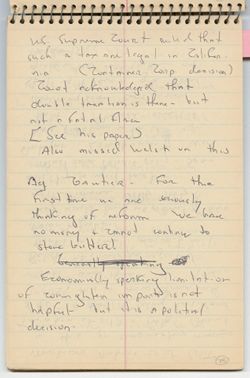 US. Supreme Court ruled that
such a tax are legal in Califor-
nia (Container Corp decision)
Court acknowledged that
double taxation is there - but
not a fatal flaw
[See his paper]
Also missed Welsh on this
Ag / Gautier - For the
first time we are seriously
thinking of reform We have
no money & cannot continue to
store butter!
Generally speaking
Economically speaking limitation
of imports is not
helpful but it is a political
decision.